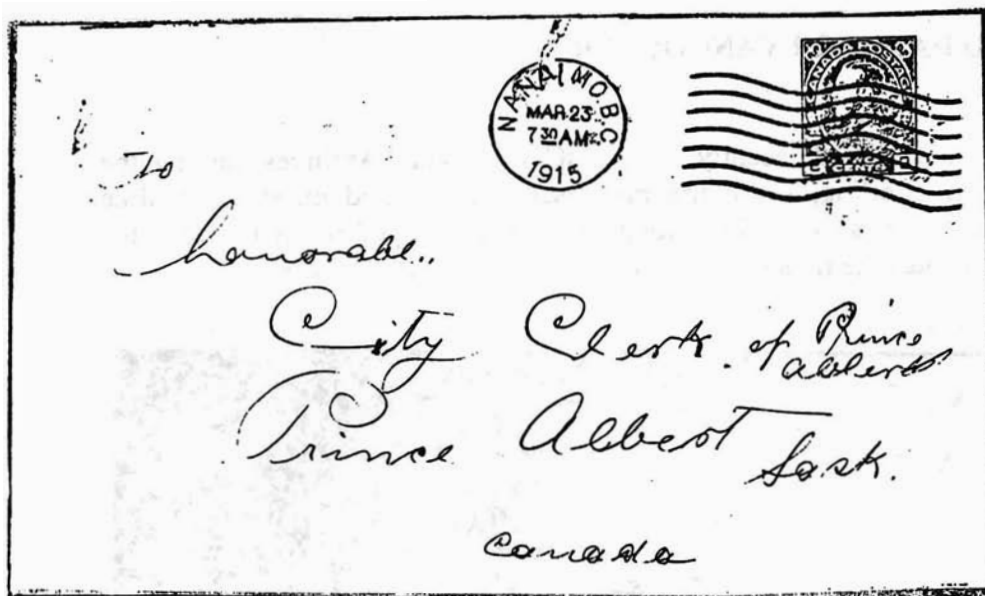 NANAIMO. B.C.
MAR 23
7 30 AM
1915
CANADA POSTAGE
To
honorable..
City Clerk. of Prince
albert
Prince Albert
Sask.
Canada